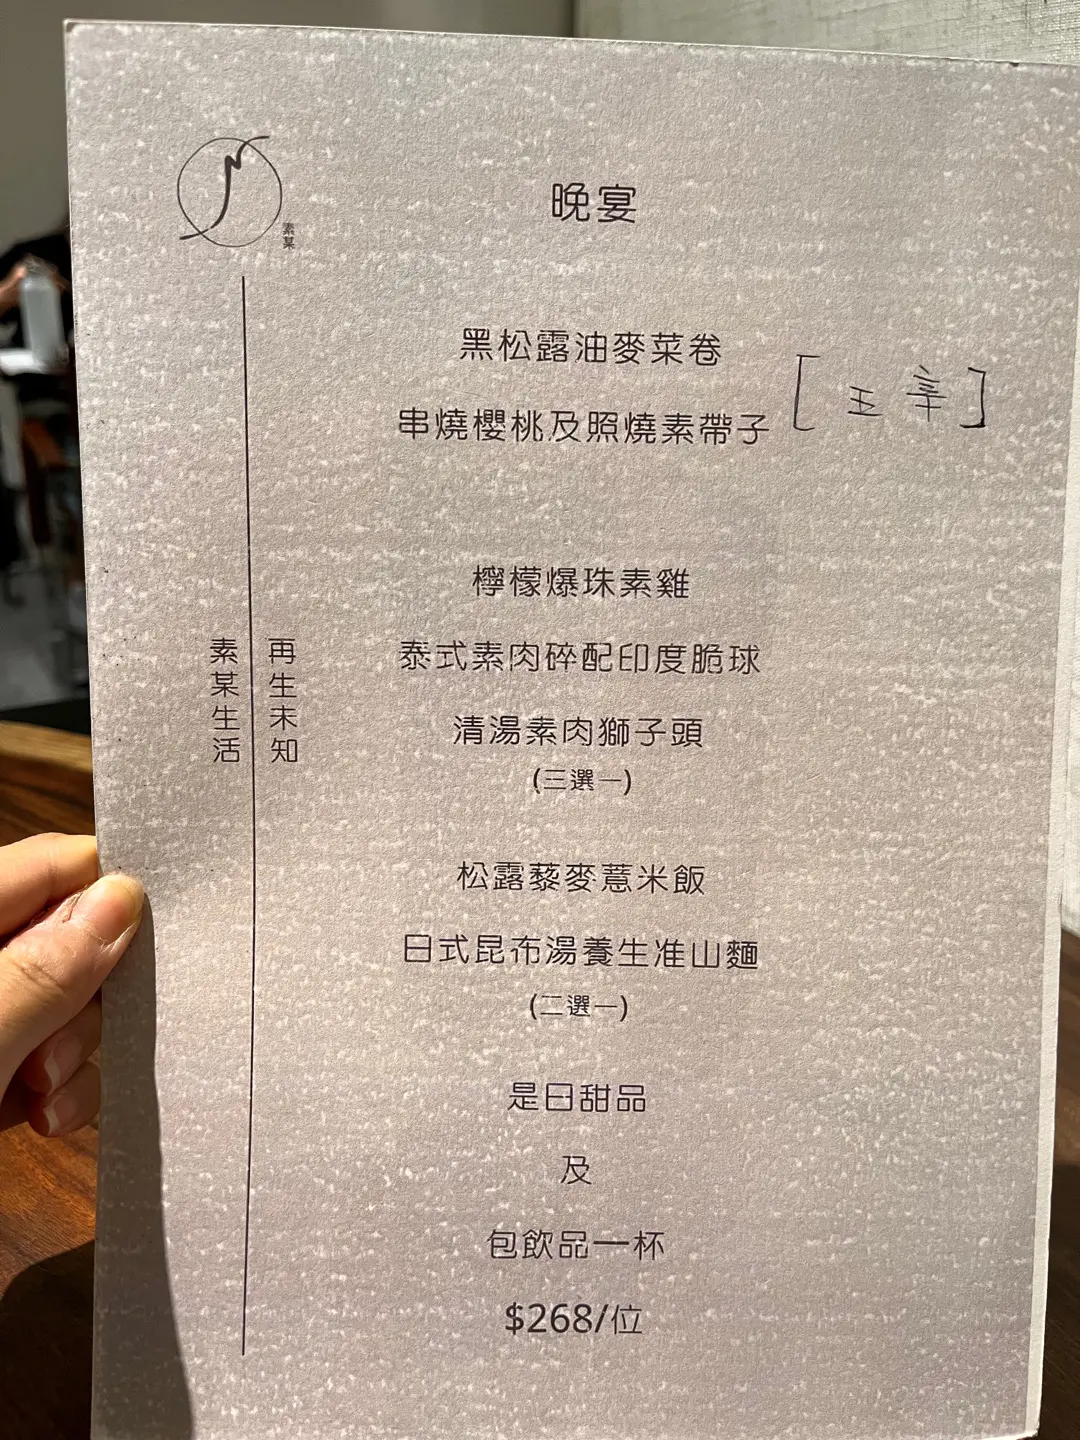 素某
晚宴
黑松露油麥菜卷
串燒櫻桃及照燒素帶子
[五辛]
檸檬爆珠素雞
泰式素肉碎配印度脆球
清湯素肉獅子頭
(三選一)
松露藜麥薏米飯
日式昆布湯養生准山麵
(二選一)
是日甜品
及
包飲品一杯
$268/位
再生未知
素某生活